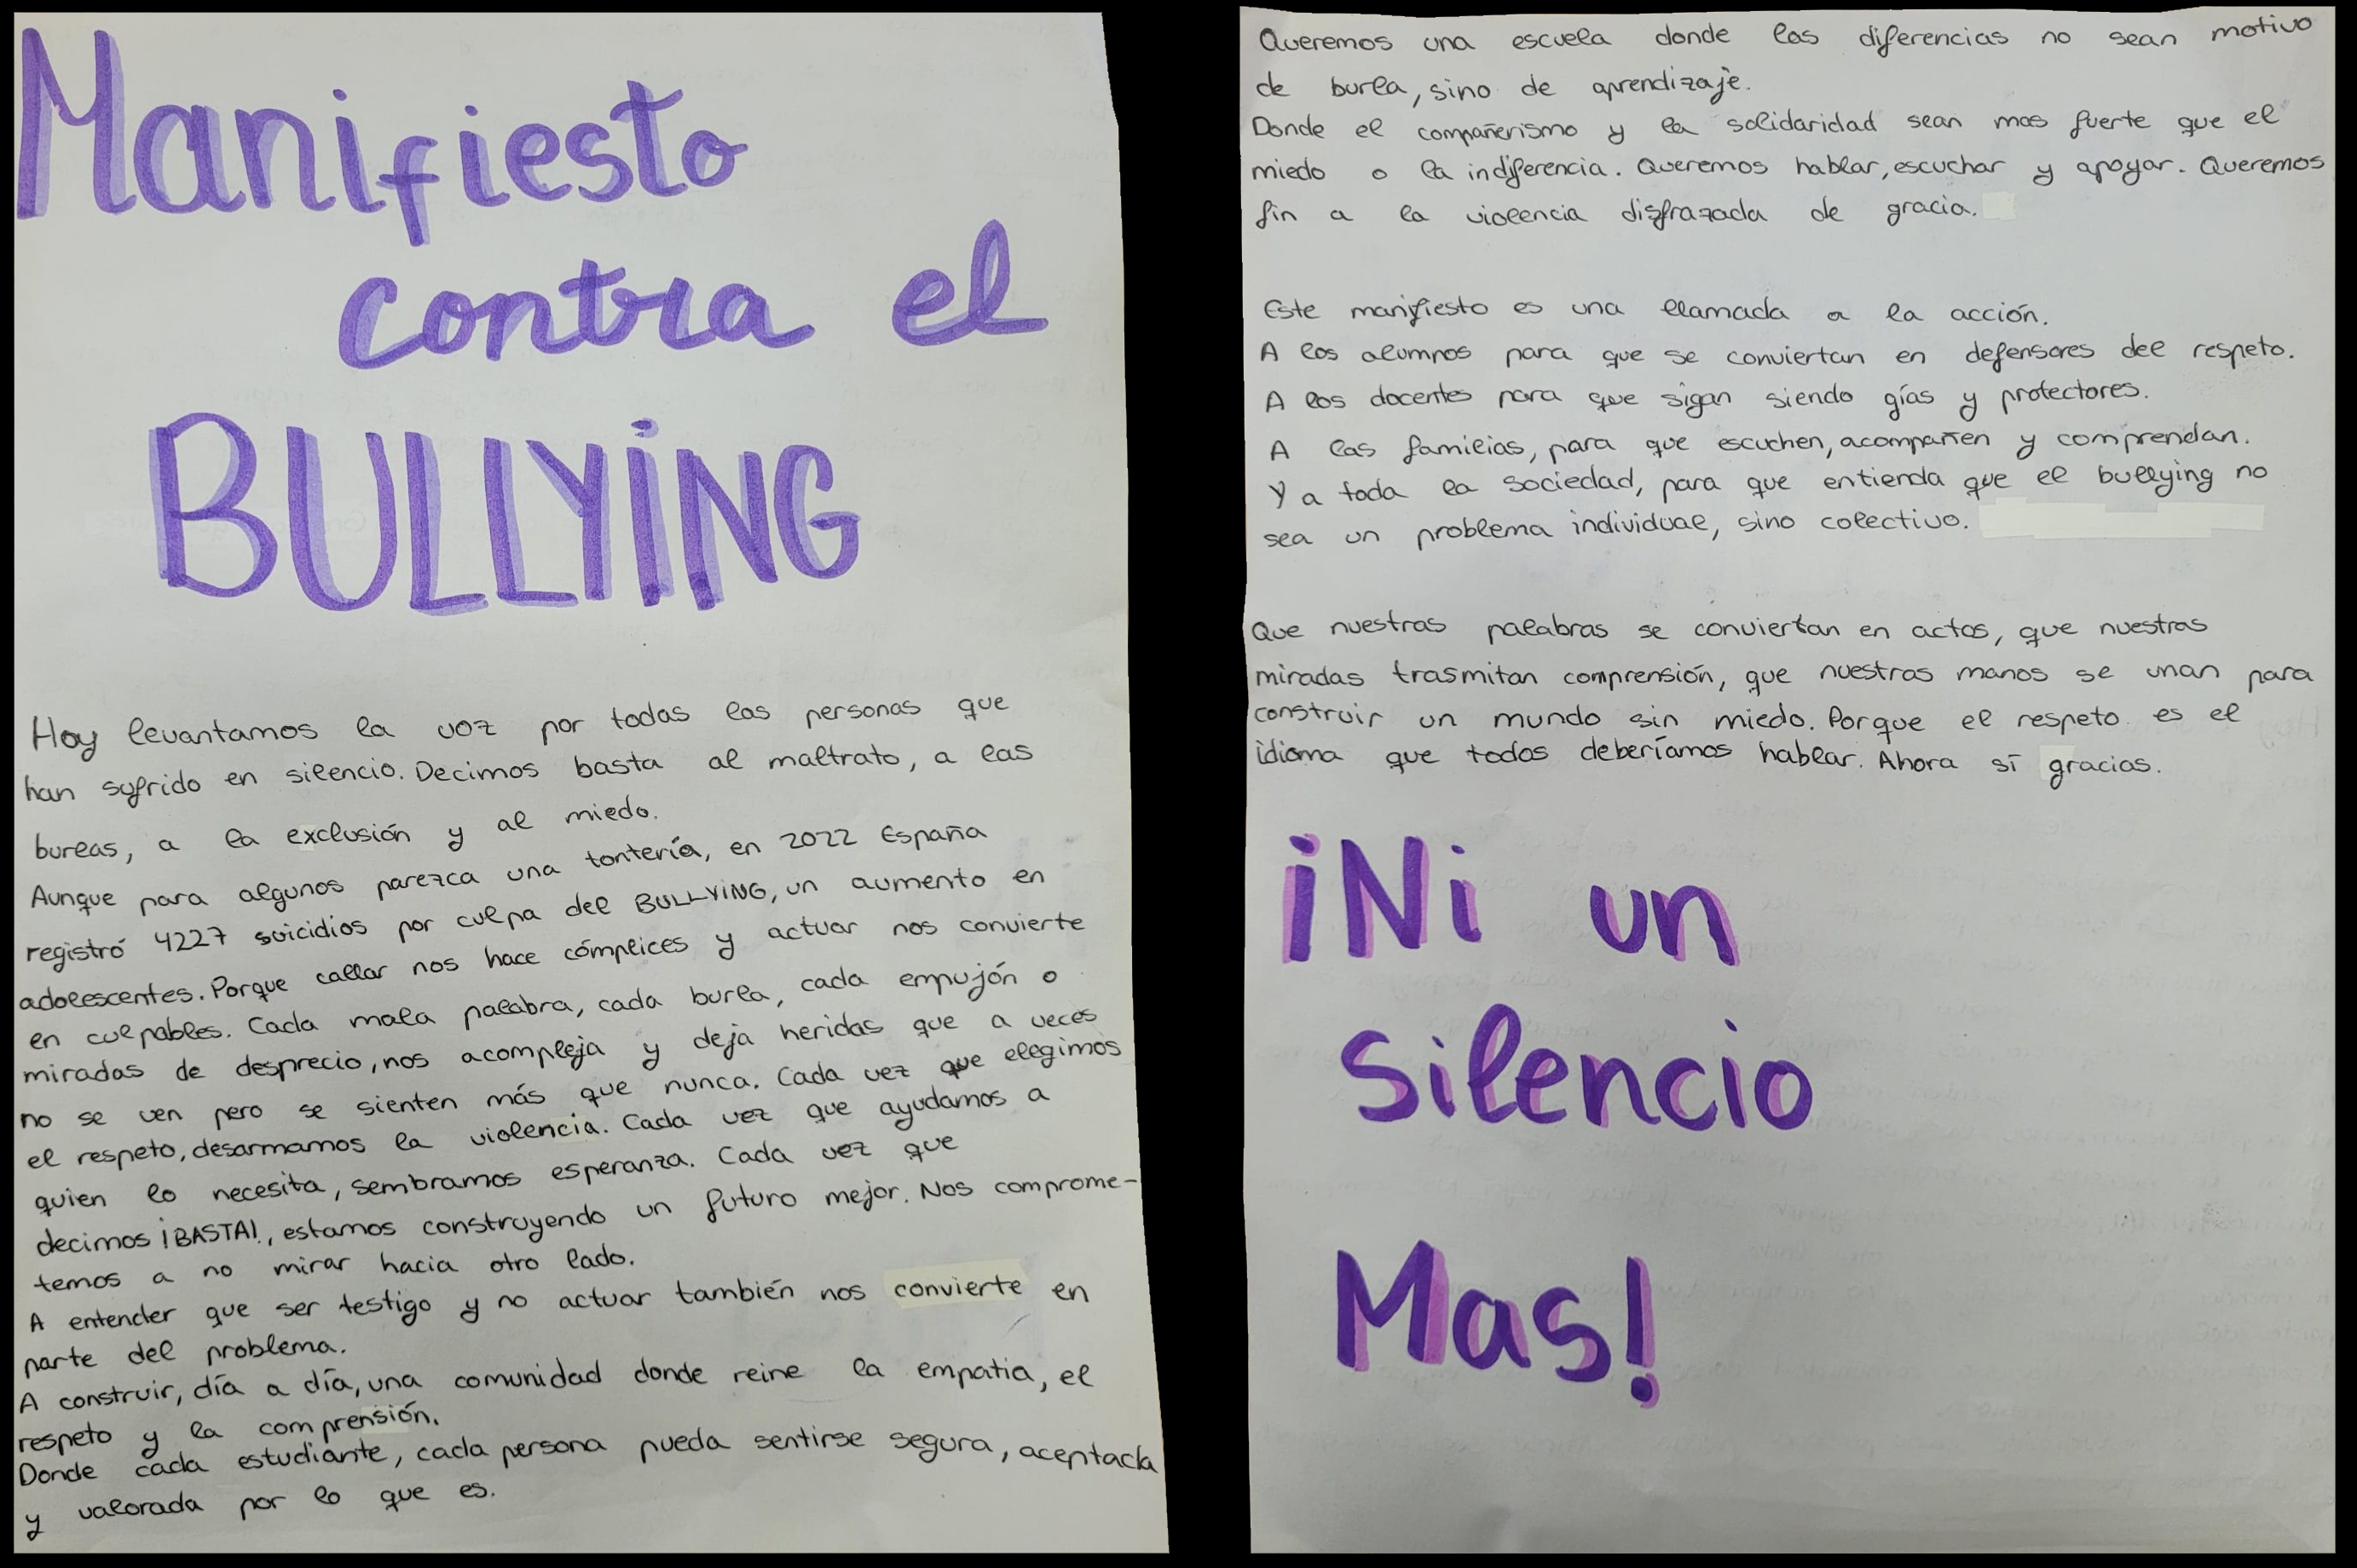 Manifiesto
contra el
BULLYING
Hoy levantamos la voz por todas las personas que
han sufrido en silencio. Decimos basta al maltrato, a las
burlas, a la exclusión y al miedo.
Aunque para algunos parezca una tontería, en 2022 España
registró 4227 suicidios por culpa del BULLYING, un aumento en
adolescentes. Porque callar nos hace cómplices y actuar nos convierte
en culpables. Cada mala palabra, cada burla, cada empujón o
miradas de desprecio, nos acompleja y deja heridas que a veces
no se ven pero se sienten más que nunca. Cada vez que elegimos
el respeto, desarmamos la violencia. Cada vez que ayudamos a
quien lo necesita, sembramos esperanza. Cada vez que
decimos ¡BASTA!, estamos construyendo un futuro mejor. Nos comprome-
temos a no mirar hacia otro lado.
A entender que ser testigo y no actuar también nos convierte en
parte del problema.
A construir, día a día, una comunidad donde reine la empatia, el
respeto y la comprensión.
Donde cada estudiante, cada persona pueda sentirse segura, aceptada
y valorada por lo que es.
Queremos una escuela donde las diferencias no sean motivo
de burla, sino de aprendizaje.
Donde el compañerismo y la solidaridad sean mas fuerte que el
miedo o la indiferencia. Queremos hablar, escuchar y apoyar. Queremos
fin a la violencia disfrazada de gracia.
Este manifiesto es una llamada a la acción.
A los alumnos para que se conviertan en defensores del respeto.
A los docentes para que sigan siendo gías y protectores.
A las familias, para que escuchen, acompañen y comprendan.
Y a toda la sociedad, para que entienda que el bullying no
sea un problema individual, sino colectivo.
Que nuestras palabras se conviertan en actos, que nuestras
miradas trasmitan comprensión, que nuestras manos se unan para
construir un mundo sin miedo. Porque el respeto es el
idioma que todos deberíamos hablar. Ahora sí gracias.
¡Ni un
Silencio
Mas!